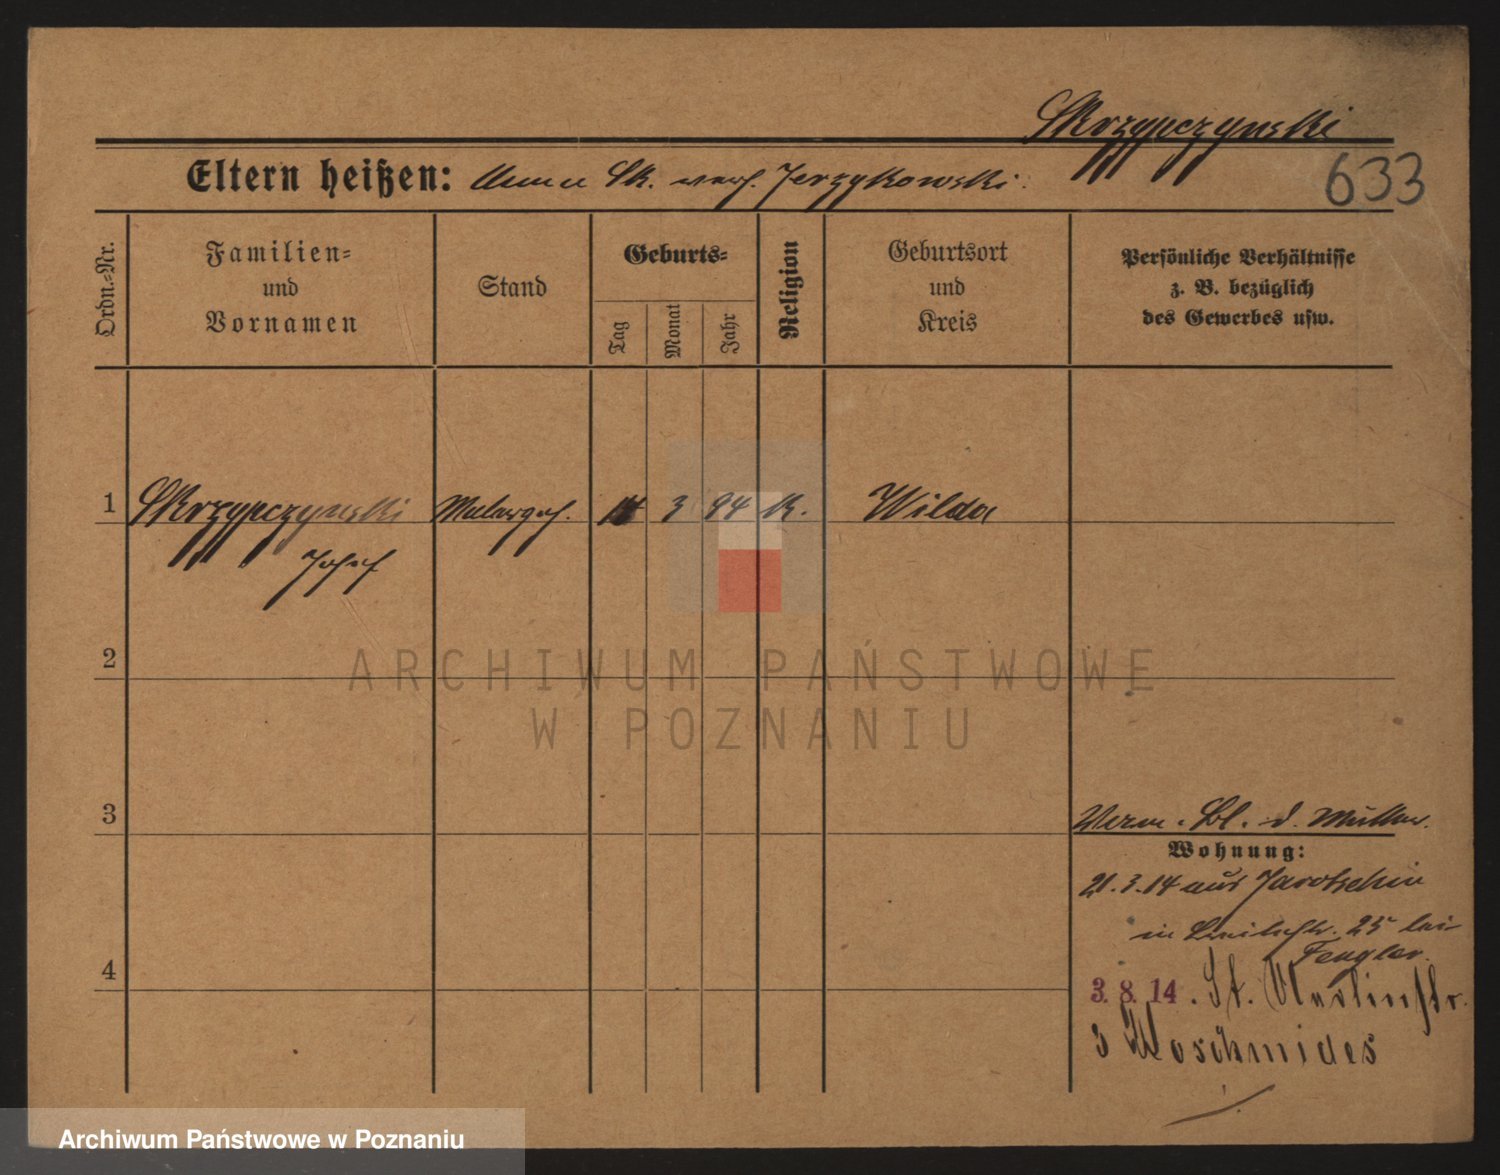 Skrzypczynski
Eltern heißen: Anna Sk. verh. Jerzykowski.
633
Ordn.-Nr.
Familien-
und
Vornamen
Stand
Geburts-
Tag
Monat
Jahr
Religion
Geburtsort
und
Kreis
Persönliche Verhältnisse
z. B. bezüglich
des Gewerbes usw.
1 Skrzypczynski Malergeh. 3 94 K. Wilda
Josef
2
3
Verw. Bl. d. Mutter.
Wohnung:
21.3.14 aus Jarotschin
in Breitestr. 25 bei
Fengler.
4
3. 8. 14. St. Martinstr.
3 Woschmides
ARCHIWUM PAŃSTWOWE
W POZNANIU
Archiwum Państwowe w Poznaniu